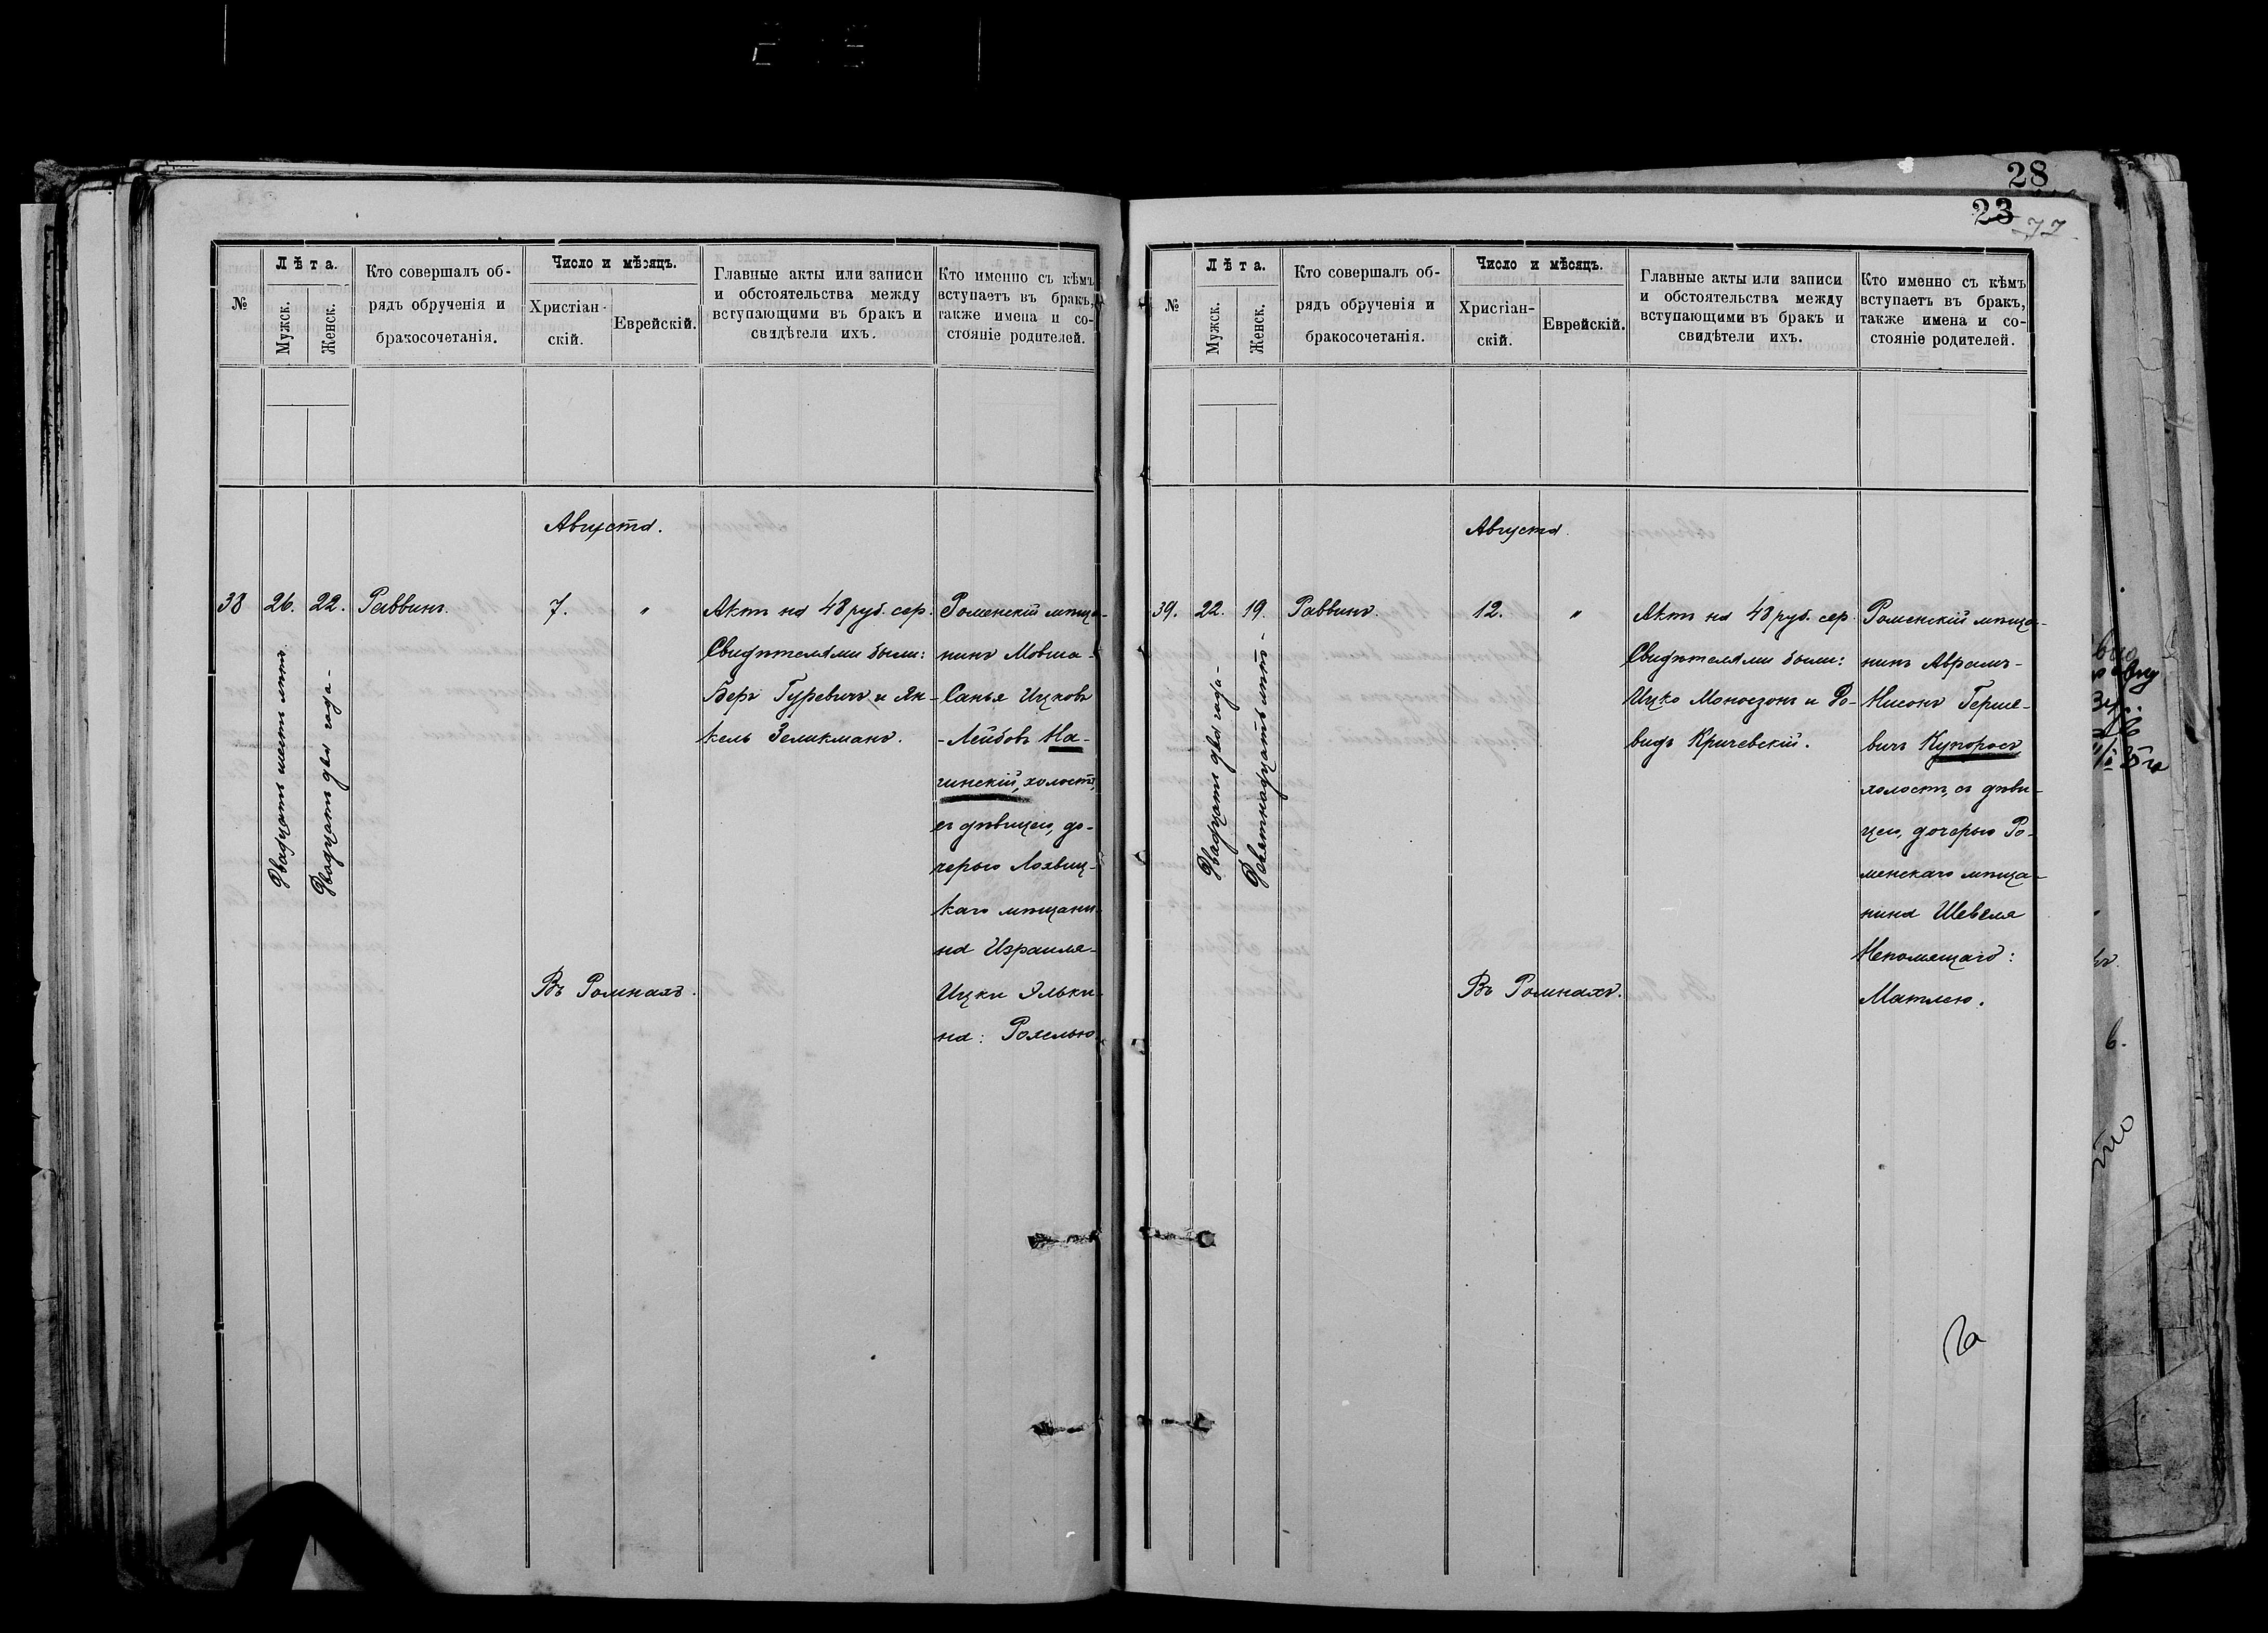 28
23
77
№
Лѣта.
Мужск.
Женск.
Кто совершалъ об-
рядъ обрученія и
бракосочетанія.
Число и мѣсяцъ.
Христіан-
скій.
Еврейскій.
Главные акты или записи
и обстоятельства между
вступающими въ бракъ и
свидѣтели ихъ.
Кто именно съ кѣмъ
вступаетъ въ бракъ,
также имена и со-
стояніе родителей.
Августа.
38
26.
Двадцать шесть лѣтъ.
22.
Двадцать два года-
Раввинъ.
7.
"
Въ Ромнахъ.
Актъ на 48 руб. сер.
Свидѣтелями были:
Беръ Гуревичъ и Ян-
кель Зеликманъ.
Роменскій мѣща-
нинъ Мовша-
Санья Ицковъ
-Лейбовъ На-
гинскій, холостъ,
съ дѣвицею, до-
черью Лохвиц-
каго мѣщани-
на Израиля-
Ицки Эльки-
на: Рохелью.
№
Лѣта.
Мужск.
Женск.
Кто совершалъ об-
рядъ обрученія и
бракосочетанія.
Число и мѣсяцъ.
Христіан-
скій.
Еврейскій.
Главные акты или записи
и обстоятельства между
вступающими въ бракъ и
свидѣтели ихъ.
Кто именно съ кѣмъ
вступаетъ въ бракъ,
также имена и со-
стояніе родителей.
Августа.
39.
22.
Двадцать два года-
19.
Девятнадцать лѣтъ-
Раввинъ.
12.
"
Въ Ромнахъ.
Актъ на 48 руб. сер.
Свидѣтелями были:
Ицко Моносзонъ и До-
видъ Кричевскій.
Роменскій мѣща-
нинъ Абрамъ-
Нисонъ Герше-
вичъ Купоросъ
холостъ, съ дѣви-
цею, дочерью Ро-
менскаго мѣща-
нина Шевеля
Непомящаго:
Матлею.